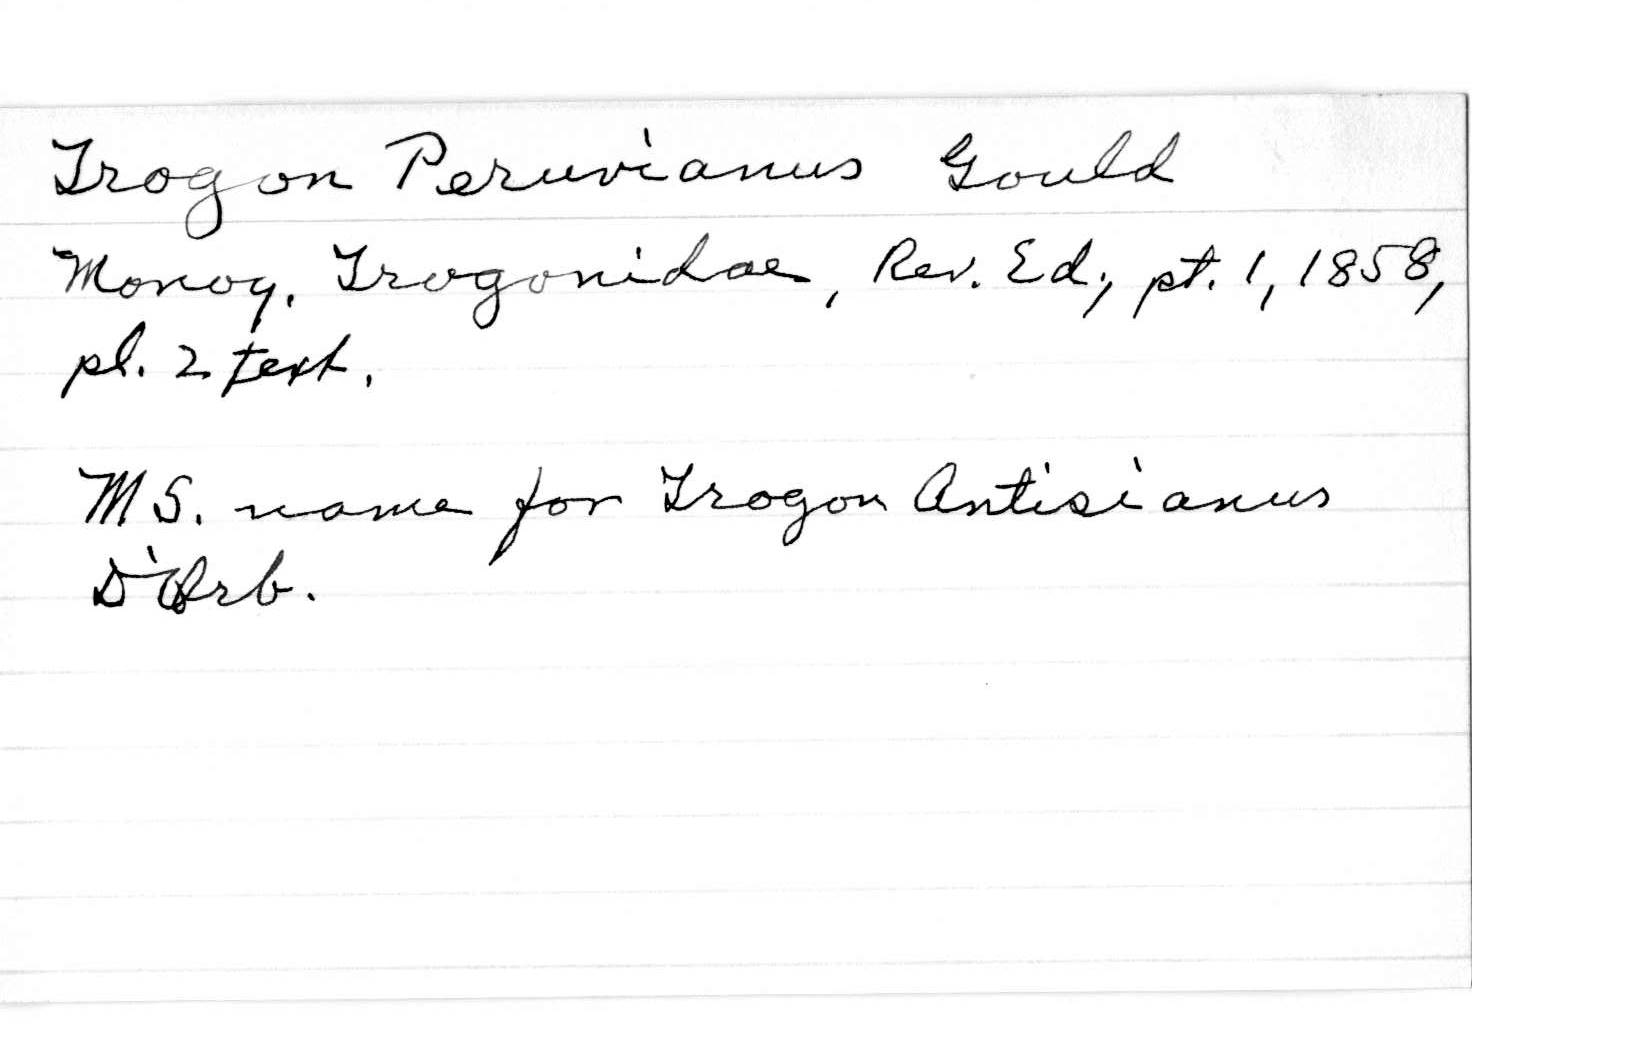 Trogon Peruvianus Gould
Monog. Trogonidae, Rev. Ed., pt. 1, 1858,
pl. 2 text.
MS. name for Trogon Antisianus
D'Orb.